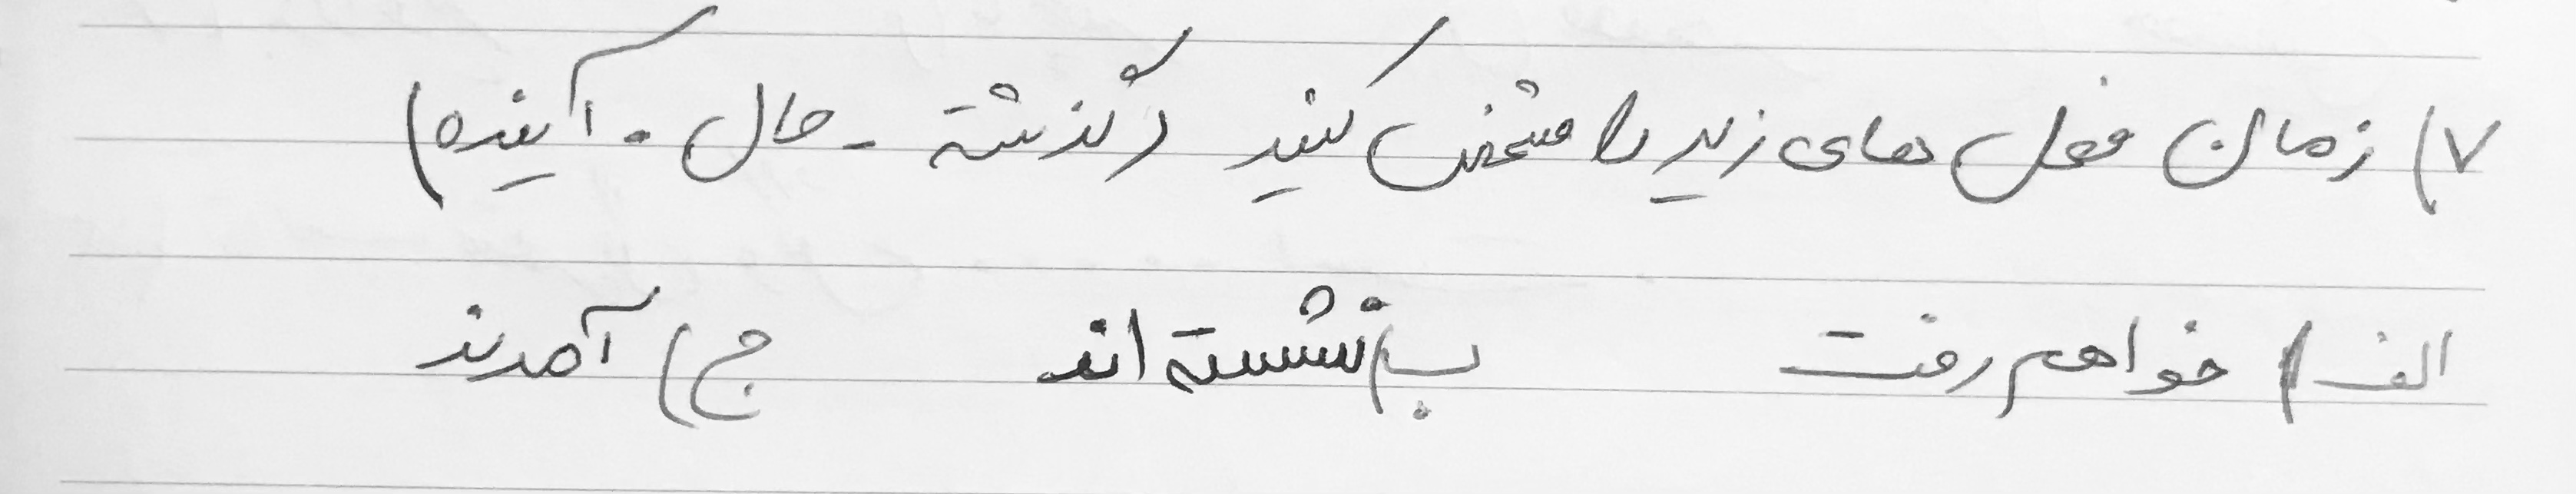 ۷) زمان فعل های زیر را مشخص کنید (گذشته - حال - آینده)
الف) خواهم رفت ب) نشسته اند ج) آمدند